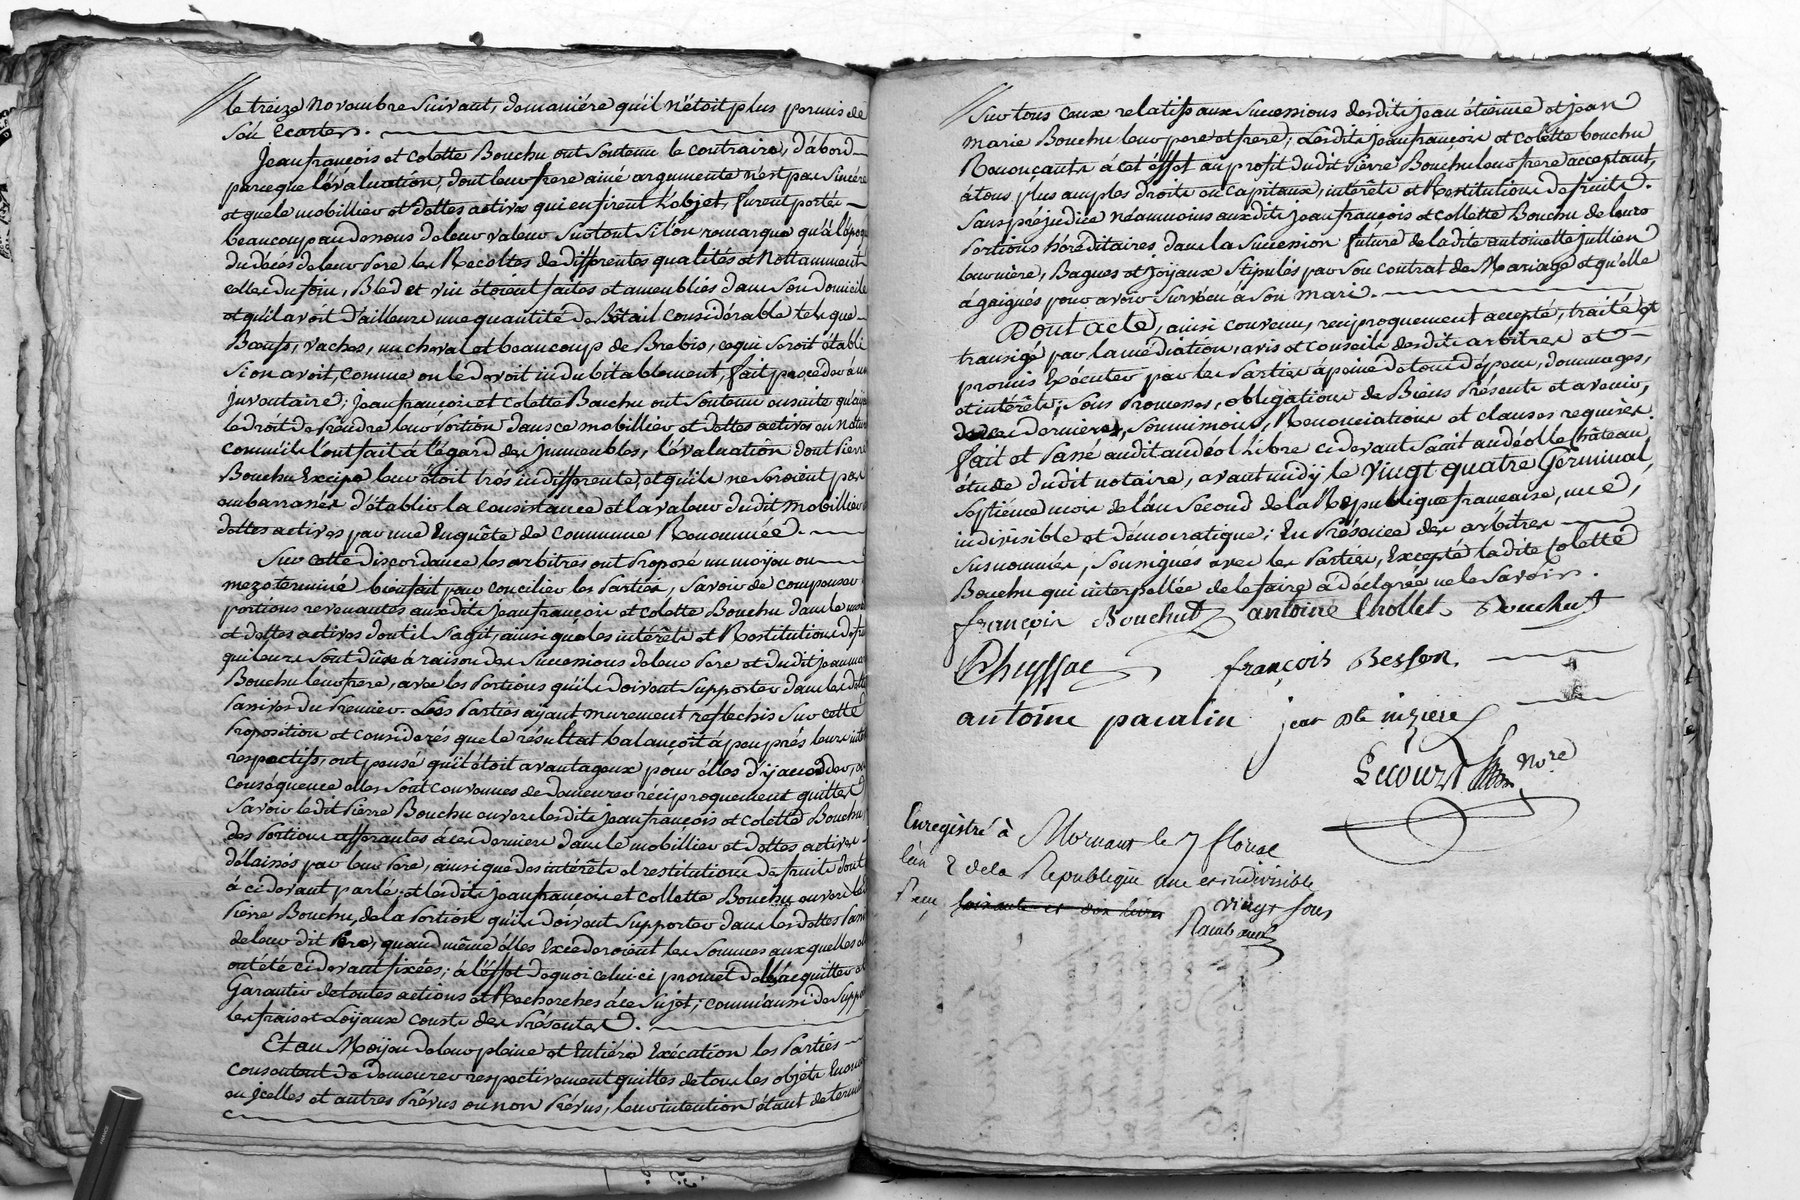 le treize novembre suivant, de maniére qu'il n'étoit plus permis de
s'en Ecarter.
Jean françois et Colette Bouchu ont soutenu le contraire, d'abord
parceque l'évaluation, dont leur frere ainé argumente n'est pas sincére
et que le mobillier et dettes actives qui en firent l'objet, furent portés
beaucoup au dessous de leur valeur surtout si l'on remarque qu'à l'époque
du décés de leur Pere les Recoltes de differentes qualités et Nottamment
celles du foin, Bled et vin étoient faites et ameublies dans son domicile
et qu'il avoit d'ailleurs une quantité de Bétail considérable tels que
Bœufs, vaches, un cheval et beaucoup de Brebis, ce qui seroit établi
si on avoit, comme on le devoit indubitablement, fait proceder à un
juventaire; Jean françois et Colette Bouchu ont soutenu ensuite qu'ayant
le droit de Prendre leur Portion dans ce mobillier et dettes actives en Nature
comme ils l'ont fait à l'égard des jmmeubles, l'évaluation dont Pierre
Bouchu Excipe leur étoit trés indifferente, et qu'ils ne seroient pas
embarrassés d'établir la consistance et la valeur dudit mobillier
dettes actives par une Enquête de commune Renommée.
Sur cette discordance, les arbitres ont Proposé un moÿen ou
mezo terminé bienfait pour concilier les Parties, savoir de compenser
portions revenantes auxdits jean françois et Colette Bouchu dans le
et dettes actives dont il s'agit, ainsi que les intérêts et Restitutions de
qui leurs sont dûs à raison des successions de leur Pere et dudit jean
Bouchu leur frere, avec les Portions qu'ils doivent supporter dans les dettes
Passives du Premier. Les Parties aÿant murement reflechis sur cette
Proposition et considerés que le résultat balançoit à peu prés leurs
respectifs, ont pensé qu'il étoit avantageux pour elles d'ÿ acceder, en
conséquence elles sont convenues de demeurer réciproquement quittes
savoir ledit Pierre Bouchu envers lesdits jean françois et Colette Bouchu
des Portions afferantes à ces derniers dans le mobillier et dettes actives
délaissés par leur Pere, ainsi que des intérêts et restitutions de fruits dont
à ci devant parlé; et lesdits jean françois et collette Bouchu envers ledit
Pierre Bouchu, de la Portion qu'ils doivent supporter dans les dettes
de leur dit Pere, quand même elles Excederoient les sommes auxquelles
ont été ci devant fixées; à l'éffet de quoi celui ci promet de les acquitter et
Garantir de toutes actions et Recherches à ce sujet; comm'aussi de
les frais et Loÿaux couts des Présentes.
Et au Moÿen de leur pleine et Entiére Exécution les Parties
consentent de demeurer respectivement quittes de tous les objets
en jcelles et autres Prévus ou non Prévus, leur intention étant de
sur tous ceux relatifs aux successions desdits jean étienne et jean
marie Bouchu leur pere et frere; Lesdits jean françois et Colette bouchu
Renonçants à cet éffet au profit dudit Pierre Bouchu leur frere acceptant,
à tous plus amples droits en capitaux, intérêts et Restitutions de fruits.
Sans préjudice néanmoins auxdits jean françois et collette Bouchu de leurs
Portions héréditaires dans la succession future de ladite antoinette jullien
leur mére, Bagues et joÿaux stipulés par son contrat de Mariage et qu'elle
à gaignés pour avoir survécu à son mari.
Dont acte, ainsi convenu, reciproquement accepté, traité et
transigé par la médiation, avis et conseils desdits arbitres et
promis Exécuter par les Parties à peine de tous dépens, dommages,
et intérêts; sous Promesses, obligations de Biens Présents et avenir,
derniers, soumissions, Renonciations et clauses requises.
Fait et Passé audit andéol Libre ci devant Saint andéol le Château
étude dudit notaire, avant midÿ le vingt quatre Germinal,
septiéme mois de l'an second de la République francaise, une,
indivisible et démocratique; En Présence des arbitres
susnommés, soussignés avec les Parties, Excepté ladite Colette
Bouchu qui interpellée de le faire à déclaré ne le savoir.
françois Bouchut antoine Chollet Bouchut
Chuyssac françois Besson
antoine paualin jean Bte
Lecourt Nore
Enregistré à Mornant le 7 floreal
l'an 2 de la Republique une et indivisible
Reçu soixante et dix livres vingt sous